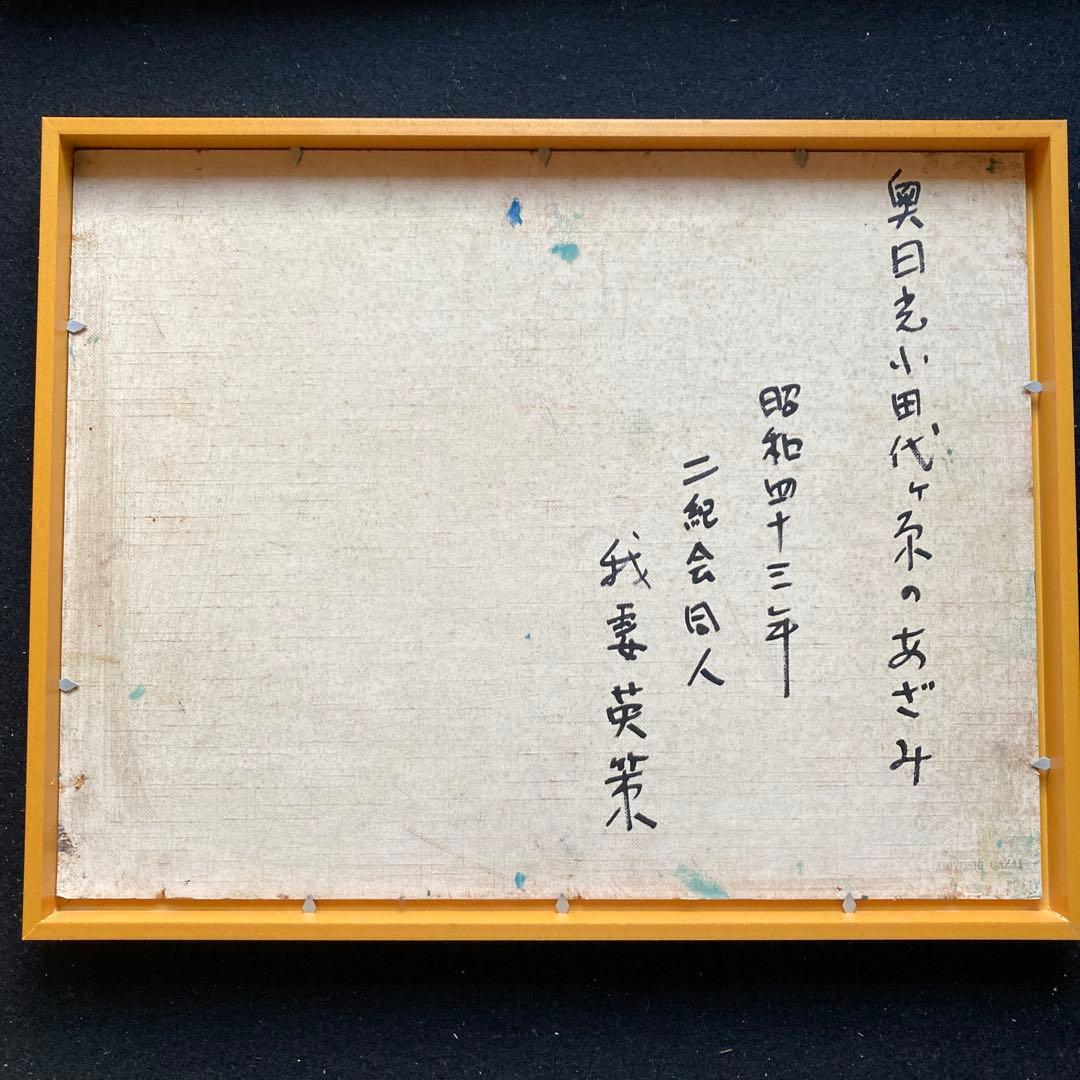 奥日光小田代ヶ原のあざみ
昭和四十三年
二紀会同人
我妻英策